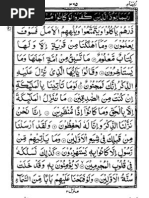 ٣٦٥
رُبَمَا يَوَدُّ الَّذِينَ كَفَرُوا لَوْ كَانُوا مُسْلِمِينَ
ذَرْهُمْ يَأْكُلُوا وَيَتَمَتَّعُوا وَيُلْهِهِمُ الْأَمَلُ فَسَوْفَ
يَعْلَمُونَ وَمَا أَهْلَكْنَا مِنْ قَرْيَةٍ إِلَّا وَلَهَا
كِتَابٌ مَعْلُومٌ مَا تَسْبِقُ مِنْ أُمَّةٍ أَجَلَهَا وَمَا
يَسْتَأْخِرُونَ وَقَالُوا يَا أَيُّهَا الَّذِي نُزِّلَ عَلَيْهِ الذِّكْرُ
إِنَّكَ لَمَجْنُونٌ لَوْ مَا تَأْتِينَا بِالْمَلٰئِكَةِ إِنْ
كُنْتَ مِنَ الصَّادِقِينَ مَا نُنَزِّلُ الْمَلٰئِكَةَ
إِلَّا بِالْحَقِّ وَمَا كَانُوا إِذًا مُنْظَرِينَ إِنَّا نَحْنُ
نَزَّلْنَا الذِّكْرَ وَإِنَّا لَهُ لَحَافِظُونَ وَلَقَدْ أَرْسَلْنَا
مِنْ قَبْلِكَ فِي شِيَعِ الْأَوَّلِينَ وَمَا يَأْتِيهِمْ مِنْ
رَسُولٍ إِلَّا كَانُوا بِهِ يَسْتَهْزِءُونَ كَذٰلِكَ نَسْلُكُهُ
فِي قُلُوبِ الْمُجْرِمِينَ لَا يُؤْمِنُونَ بِهِ وَقَدْ خَلَتْ
سُنَّةُ الْأَوَّلِينَ وَلَوْ فَتَحْنَا عَلَيْهِمْ بَابًا مِنَ السَّمَاءِ